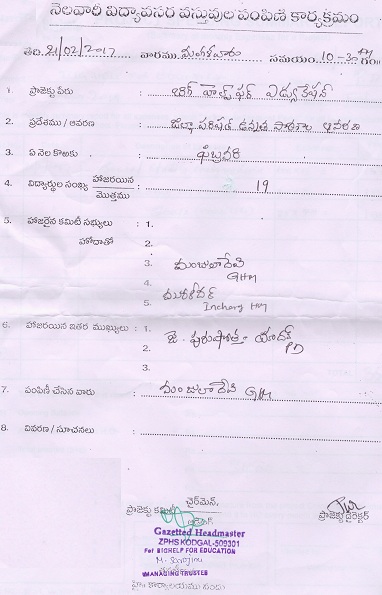 నెలవారి విద్యావసర వస్తువుల పంపిణి కార్యక్రమం
తేది. 21/02/2017 వారము. మంగళవారం సమయం. 10-30
1. ప్రాజెక్టు పేరు : బిగ్ హెల్ప్ ఫర్ ఎడ్యుకేషన్
2. ప్రదేశము / ఆవరణ : జిల్లా పరిషత్ ఉన్నత పాఠశాల ఆవరణ
3. ఏ నెల కొఱకు : ఫిబ్రవరి
4. విద్యార్థుల సంఖ్య హాజరయిన / మొత్తము : 19
5. హాజరైన కమిటీ సభ్యులు : 1.
హోదాతో 2.
3. మంజులాదేవి
GHM
4.
5. మురళీధర్
Incharg HM
6. హాజరయిన ఇతర ముఖ్యులు : 1. జె. పురుషోత్తం యాదవ్
2. PD
3.
7. పంపిణీ చేసిన వారు : మంజులా దేవి GHM
8. వివరణ / సూచనలు :
చైర్‌మెన్,
ప్రాజెక్టు కమిటీ
ప్రాజెక్టు డైరెక్టర్
Gazetted Headmaster
ZPHS KODGAL-509301
For BIGHELP FOR EDUCATION
MANAGING TRUSTEE